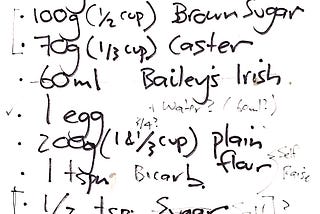 · 100g (1/2 cup) Brown Sugar
· 70g (1/3 cup) Caster
· 60ml Bailey's Irish
· 1 egg + Water?
3/4?
· 200g (1 & 1/3 cup) plain flour
Self Raise
· 1 tspn Bicarb
1/2 tsp Sugar